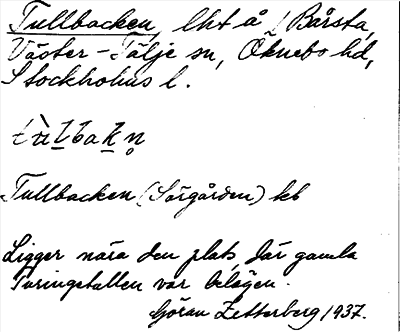 Tullbacken, lht å Bårsta,
Väster-Tälje sn, Öknebo hd,
Stockholms l.
Tullbacken (Sörgården) kb
Ligger nära den plats, där gamla
Turingetullen var belägen.
Göran Zetterberg 1937.